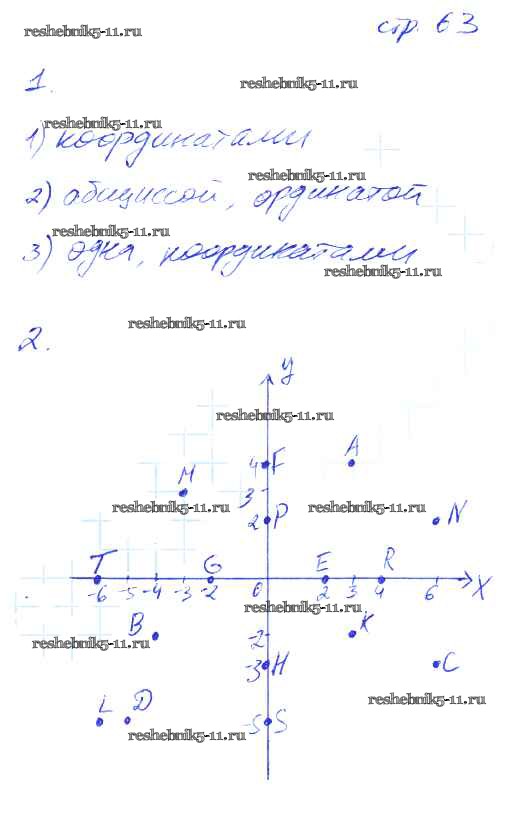 стр. 63
reshebnik5-11.ru
1.
reshebnik5-11.ru
reshebnik5-11.ru
1) координатами
reshebnik5-11.ru
2) абциссой, ординатой
reshebnik5-11.ru
3) одна, координатами
reshebnik5-11.ru
reshebnik5-11.ru
2.
y
reshebnik5-11.ru
A
4 F
M
3
reshebnik5-11.ru reshebnik5-11.ru
2 P N
T G E R
-6 -5 -4 -3 -2 0 2 3 4 6 X
reshebnik5-11.ru
B -2 K
reshebnik5-11.ru
-3 H C
reshebnik5-11.ru
L D
-5 S
reshebnik5-11.ru